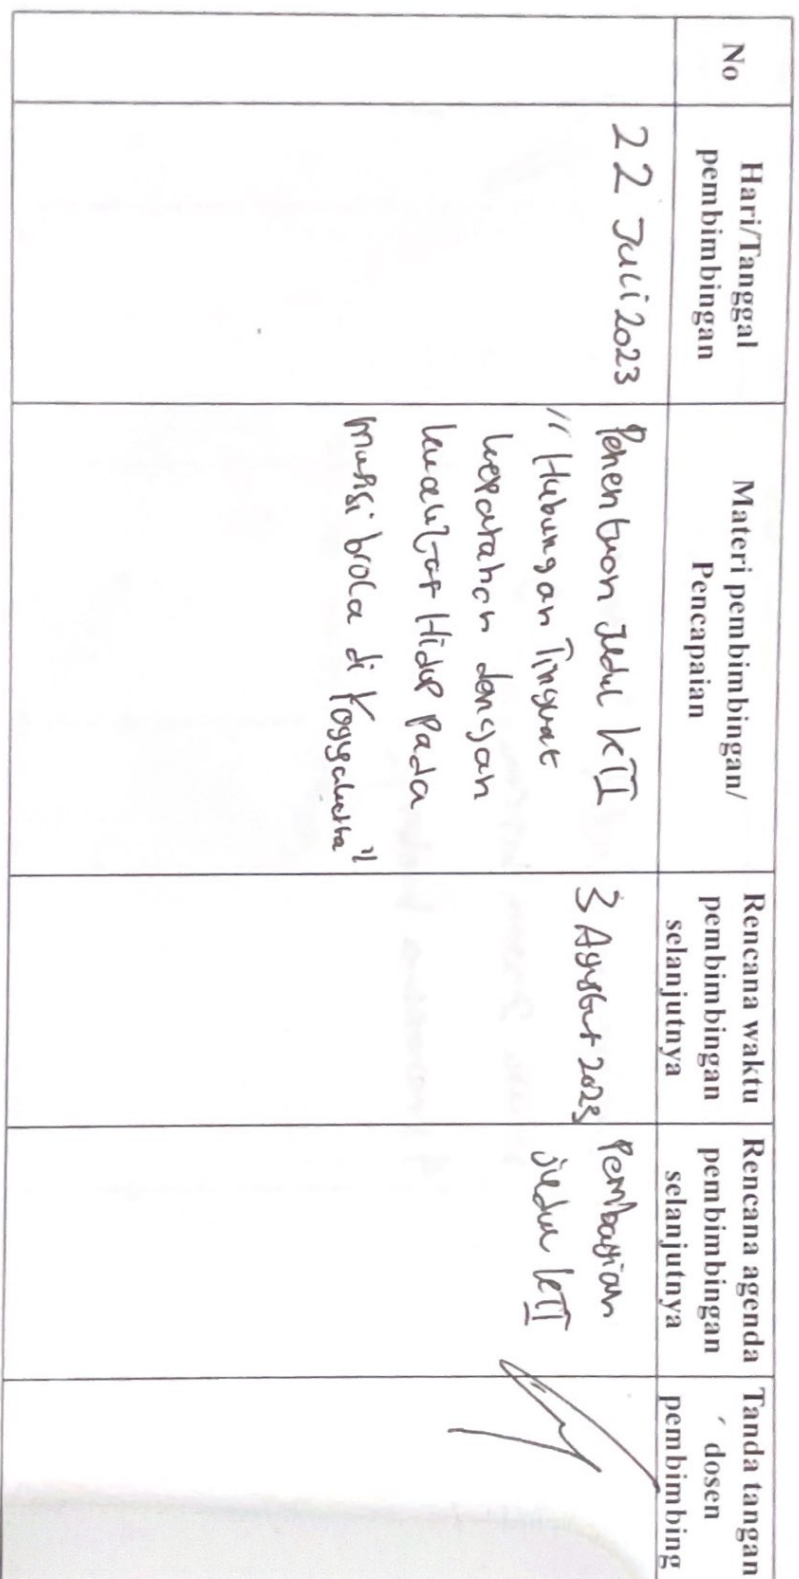 No
Hari/Tanggal
pembimbingan
Materi pembimbingan/
Pencapaian
Rencana waktu
pembimbingan
selanjutnya
Rencana agenda
pembimbingan
selanjutnya
Tanda tangan
dosen
pembimbing
22 Juli 2023
Penentuan Judul KTI
"Hubungan Tingkat
keparahan dengan
kualitas Hidup Pada
di Yogyakarta"
3 Agustus 2023
Pembagian
judul KTI